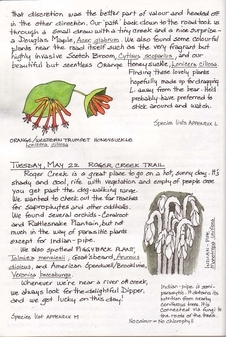 that discretion was the better part of valour and headed off
in the other direction. Our 'path' back down to the road took us
through a small draw with a tiny creek and a nice surprise-
a Douglas Maple, Acer glabrum. We also found some colourful
plants near the road itself such as the very fragrant but
highly invasive Scotch Broom, Cytisus scoparius, and our
beautiful but scentless Orange Honeysuckle, Lonicera ciliosa.
Finding these lovely plants
hopefully made up for dragging
L. away from the bear. He'd
probably have preferred to
stick around and watch.
Species Lists Appendix L
ORANGE/WESTERN TRUMPET HONEYSUCKLE
Lonicera ciliosa
TUESDAY, MAY 22 ROGER CREEK TRAIL
Roger Creek is a great place to go on a hot, sunny day. It's
shady and cool, rife with vegetation and empty of people once
you get past the dog-walking zone.
We wanted to check out the far reaches
for saprophytes and other oddities.
We found several orchids - Coralroot
and Rattlesnake Plantain, but not
much in the way of parasitic plants
except for Indian-pipe.
We also spotted PIGGYBACK PLANT,
Tolmiea menziesii, Goatsbeard, Aruncus
dioicus, and American Speedwell/Brooklime,
Veronica beccabunga.
Whenever we're near a river or creek,
we always look for the delightful Dipper,
and we got lucky on this day!
Species list APPENDIX M
INDIAN-PIPE
Monotropa uniflora
Indian-pipe is semi-
parasitic. It derives its
nutrition from nearby
coniferous trees. It is
connected via fungi to
the roots of the trees.
No colour = No chlorophyll